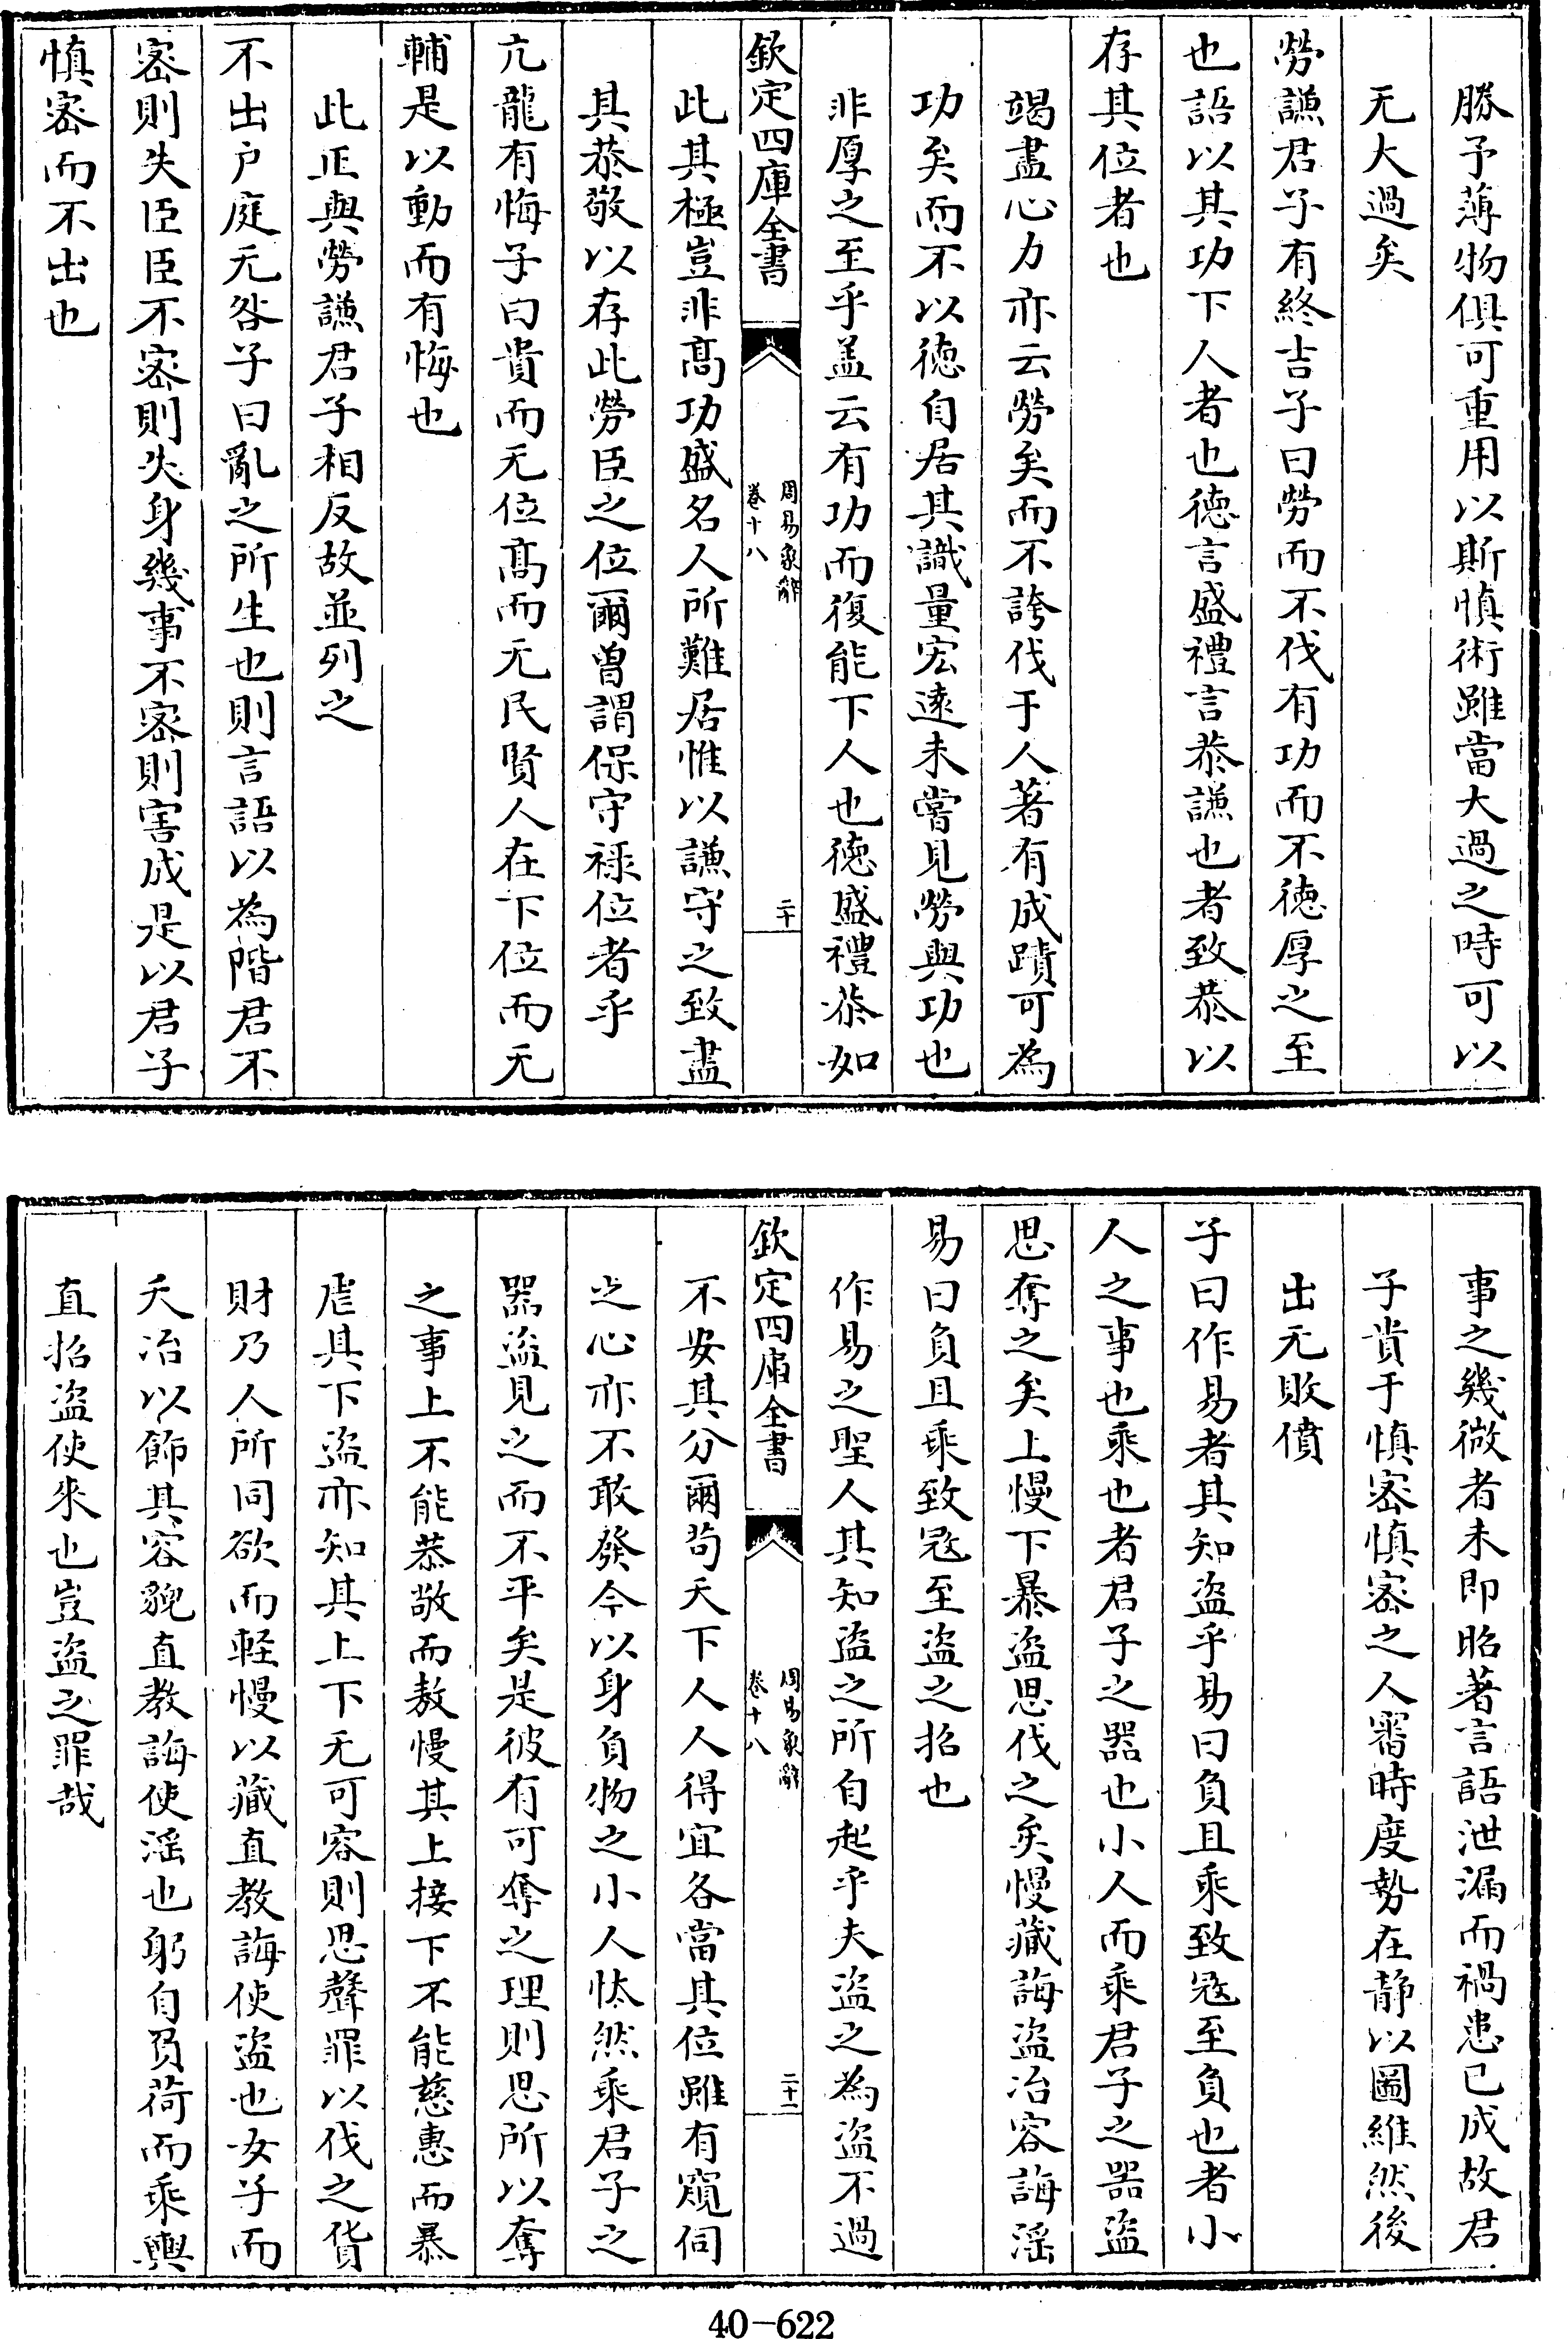 勝予薄物俱可重用以斯慎術雖當大過之時可以
无大過矣
勞謙君子有終吉子曰勞而不伐有功而不徳厚之至
也語以其功下人者也徳言盛禮言恭謙也者致恭以
存其位者也
竭盡心力亦云勞矣而不誇伐于人著有成蹟可為
功矣而不以徳自居其識量宏逺未嘗見勞與功也
非厚之至乎盖云有功而復能下人也徳盛禮恭如
欽定四庫全書
周易象辭
卷十八
二十
此其極豈非髙功盛名人所難居惟以謙守之致盡
其恭敬以存此勞臣之位爾曾謂保守禄位者乎
亢龍有悔子曰貴而无位髙而无民賢人在下位而无
輔是以動而有悔也
此正與勞謙君子相反故並列之
不出户庭无咎子曰亂之所生也則言語以為階君不
宻則失臣臣不宻則失身幾事不宻則害成是以君子
慎宻而不出也
事之幾微者未即昭著言語泄漏而禍患已成故君
子貴于慎宻慎宻之人審時度勢在静以圖維然後
出无敗僨
子曰作易者其知盗乎易曰負且乘致冦至負也者小
人之事也乘也者君子之器也小人而乘君子之器盗
思奪之矣上慢下暴盗思伐之矣慢藏誨盗冶容誨淫
易曰負且乘致冦至盗之招也
作易之聖人其知盗之所自起乎夫盗之為盗不過
欽定四庫全書
周易象辭
卷十八
二十一
不安其分爾苟天下人人得宜各當其位雖有窺伺
之心亦不敢發今以身負物之小人恬然乘君子之
器盗見之而不平矣是彼有可奪之理則思所以奪
之事上不能恭敬而敖慢其上接下不能慈惠而暴
虐其下盗亦知其上下无可容則思聲罪以伐之貨
財乃人所同欲而軽慢以藏直教誨使盗也女子而
夭冶以飾其容貌直教誨使淫也躬自負荷而乘輿
直招盗使來也豈盗之罪哉
40-622